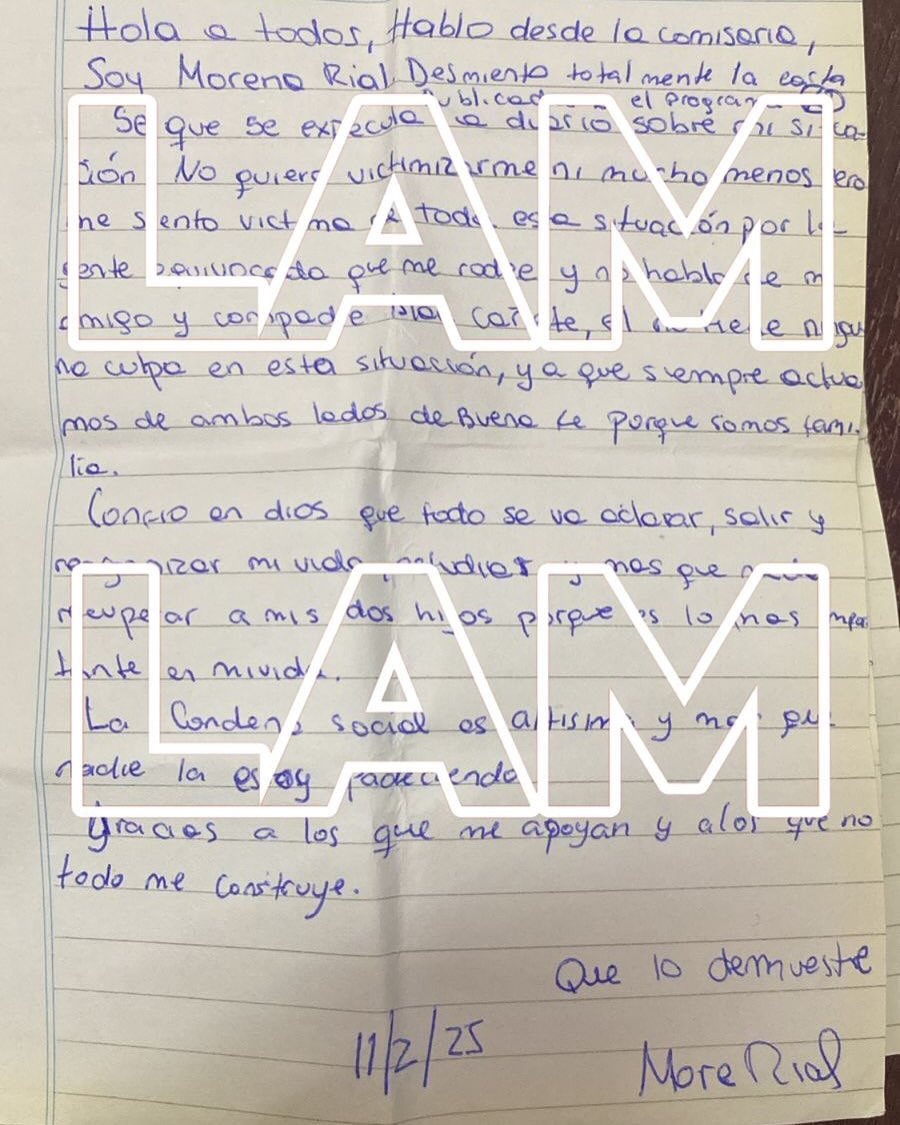 Hola a todos, Hablo desde la comisaria,
Soy Morena Rial. Desmiento totalmente la carta
el program
Se que se expecula a diario sobre mi
ción No quiero victimizarme ni mucho menos
me siento victima de toda esta situación por la
gente que me rodee y no hablo de mi
amigo y compadre el no tiene ningu
na culpa en esta situación, ya que siempre actua
mos de ambos lados de Buena fe porque somos fami.
lia.
Confio en dios que todo se va aclarar, salir y
mi vida, estudiar y mas que
a mis dos hijos porque es lo mas impor
tante en mi vida.
La Condena social es altisima y mas que
nadie la estoy padeciendo
Gracias a los que me apoyan y alos que no
todo me construye.
Que lo demuestre
11/2/25
More Rial
LAM
LAM